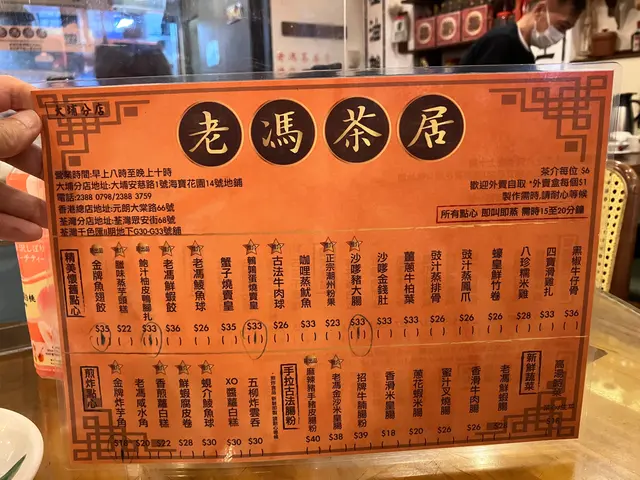 大埔分店
老馮茶居
營業時間:早上八時至晚上十時
大埔分店地址:大埔安慈路1號海寶花園14號地鋪
電話:2388 0798/2388 3759
香港總店地址:元朗大棠路66號
荃灣分店地址:荃灣眾安街68號
荃灣千色匯II期地下G30-G33號舖
茶介每位 $6
歡迎外賣自取 *外賣盒每個$1
製作需時,請耐心等候
所有點心 即叫即蒸 需時15至20分鐘
精美懷舊點心
金牌魚翅餃 $35
臘味蒸芋頭糕 $22
鮑汁柚皮鴨腳扎 $33
老馮鮮蝦餃 $36
老馮鯪魚球 $26
蟹子燒賣皇 $35
鵪鶉蛋燒賣皇 $33
古法牛肉球 $26
咖哩蒸魷魚 $33
正宗潮州粉果 $23
沙嗲豬大腸 $33
沙嗲金錢肚 $33
薑蔥牛柏葉 $33
豉汁蒸排骨 $26
豉汁蒸鳳爪 $26
蠔皇鮮竹卷 $26
八珍糯米雞 $28
四寶滑雞扎 $33
黑椒牛仔骨 $36
煎炸點心
金牌炸芋角 $18
老馮咸水角 $20
香煎蘿白糕 $22
鮮蝦腐皮卷 $28
蜆介鯪魚球 $30
XO醬蘿白糕 $30
五柳炸雲吞 $30
手拉古法腸粉
麻辣豬手豬皮腸粉 $40
老馮金沙米網腸 $38
招牌牛腩腸粉 $39
香滑米皇腸 $18
蔥花蝦米腸 $20
蜜汁叉燒腸 $26
香滑牛肉腸 $26
老馮鮮蝦腸
新鮮蔬菜